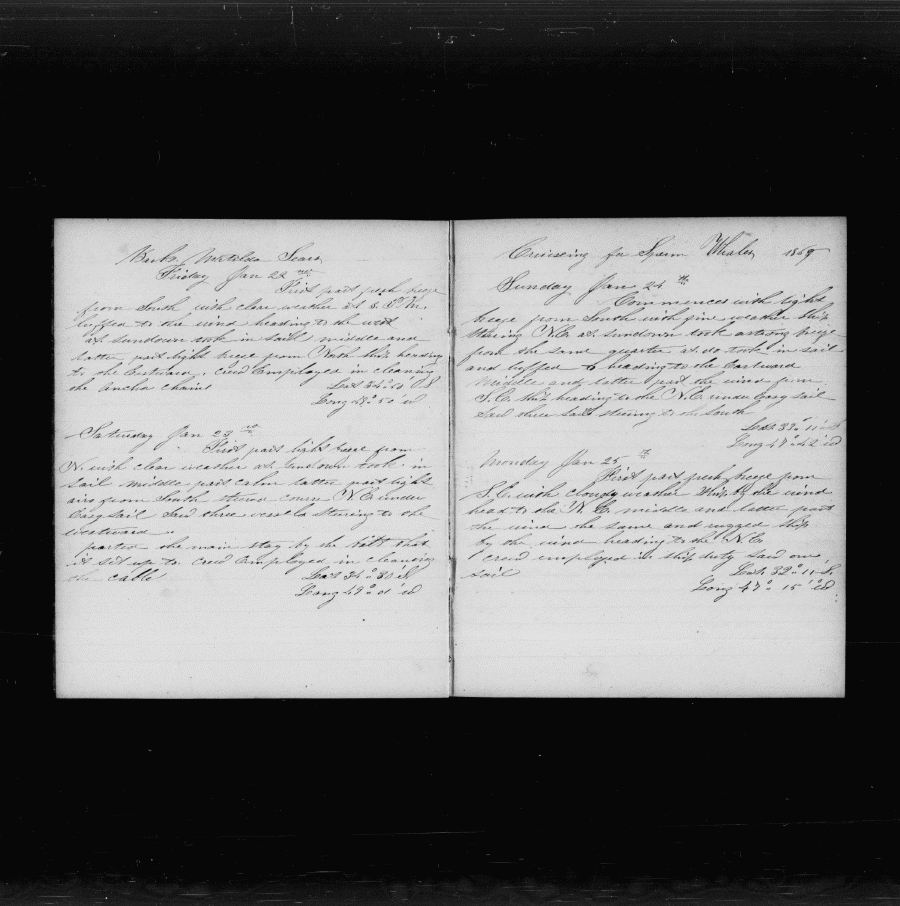 Bark Matilda Sears
Friday Jan 22nd
First part fresh breeze
from South with clear weather at 5 P.M.
luffed to the wind heading to the west
at sundown took in sail middle and
latter part light breeze from North ship heading
to the Eastward. crew Employed in cleaning
the Anchor chains Lat 34° 50 S
Long 49° 50 W
Saturday Jan 23rd
First part light breeze from
N. with clear weather at sundown took in
sail middle part calm latter part light
airs from South steered course N.E. under
Easy sail Saw three vessels steering to the
westward
parted the main stay by the bolt that
it set up to. crew Employed in cleaning
the cable Lat 34° 30 S
Long 49° 01 W
Cruising for Sperm Whales 1869
Sunday Jan 24th
Commences with light
breeze from South with fine weather ship
steering N.E. at sundown took a strong breeze
from the same quarter at do took in sail
and luffed to heading to the Eastward
Middle and latter part the wind from
S.E. ship heading to the N.E. under Easy sail
Saw three sails steering to the South
Lat 33° 11 S
Long 47° 42 W
Monday Jan 25th
First part fresh breeze from
S.E. with cloudy weather ship by the wind
head to the N.E. middle and latter part
the wind the same and rugged ship
by the wind heading to the N.E.
crew employed in ship duty saw one
sail Lat 32° 11 S.
Long 47° 15 W